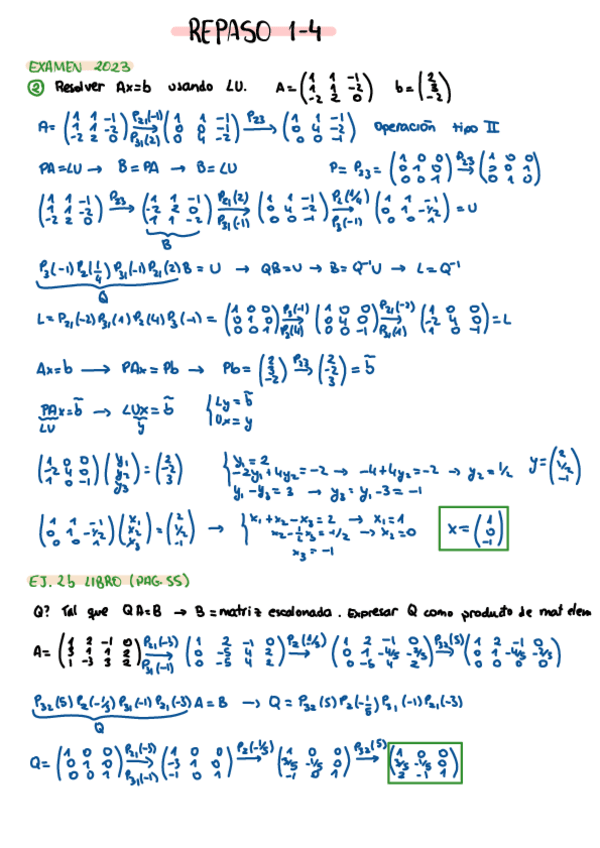 REPASO 1-4
EXAMEN 2023
② Resolver Ax=b usando LU. A=(1 1 -1; 1 1 -2; -2 2 0) b=(2; 3; -2)
A=(1 1 -1; 1 1 -2; -2 2 0) P21(-1) P31(2) → (1 1 -1; 0 0 -1; 0 4 -2) P23 → (1 1 -1; 0 4 -2; 0 0 -1) operación tipo II
PA=LU → B=PA → B=LU P=P23=(1 0 0; 0 1 0; 0 0 1) P23 → (1 0 0; 0 0 1; 0 1 0)
(1 1 -1; 1 1 -2; -2 2 0) P23 → (1 1 -1; -2 2 0; 1 1 -2) P21(2) P31(-1) → (1 1 -1; 0 4 -2; 0 0 -1) P2(1/4) P3(-1) → (1 1 -1; 0 1 -1/2; 0 0 1) = U
B
P3(-1) P2(1/4) P31(-1) P21(2) B = U → QB=U → B=Q⁻¹U → L=Q⁻¹
Q
L=P21(-2) P31(1) P2(4) P3(-1) = (1 0 0; 0 1 0; 0 0 1) P3(-1) P2(4) → (1 0 0; 0 4 0; 0 0 -1) P21(-2) P31(1) → (1 0 0; -2 4 0; 1 0 -1) = L
Ax=b → PAx=Pb → Pb=(2; 3; -2) P23 → (2; -2; 3) = b̃
PAx=b̃ → LUx=b̃ { Ly=b̃
LU y Ux=y
(1 0 0; -2 4 0; 1 0 -1)(y1; y2; y3)=(2; -2; 3) { y1=2
-2y1+4y2=-2 → -4+4y2=-2 → y2=1/2 y=(2; 1/2; -1)
y1-y3=3 → y3=y1-3=-1
(1 1 -1; 0 1 -1/2; 0 0 1)(x1; x2; x3)=(2; 1/2; -1) → { x1+x2-x3=2 → x1=1
x2-1/2x3=1/2 → x2=0 x=(1; 0; -1)
x3=-1
EJ. 25 LIBRO (PAG.55)
Q? Tal que QA=B → B=matriz escalonada. Expresar Q como producto de mat elem
A=(1 2 -1 0; 3 1 1 2; 1 -3 3 2) P21(-3) P31(-1) → (1 2 -1 0; 0 -5 4 2; 0 -5 4 2) P2(-1/5) → (1 2 -1 0; 0 1 -4/5 -2/5; 0 -5 4 2) P32(5) → (1 2 -1 0; 0 1 -4/5 -2/5; 0 0 0 0)
P32(5) P2(-1/5) P31(-1) P21(-3) A = B → Q=P32(5) P2(-1/5) P31(-1) P21(-3)
Q
Q=(1 0 0; 0 1 0; 0 0 1) P21(-3) P31(-1) → (1 0 0; -3 1 0; -1 0 1) P2(-1/5) → (1 0 0; 3/5 -1/5 0; -1 0 1) P32(5) → (1 0 0; 3/5 -1/5 0; 2 -1 1)